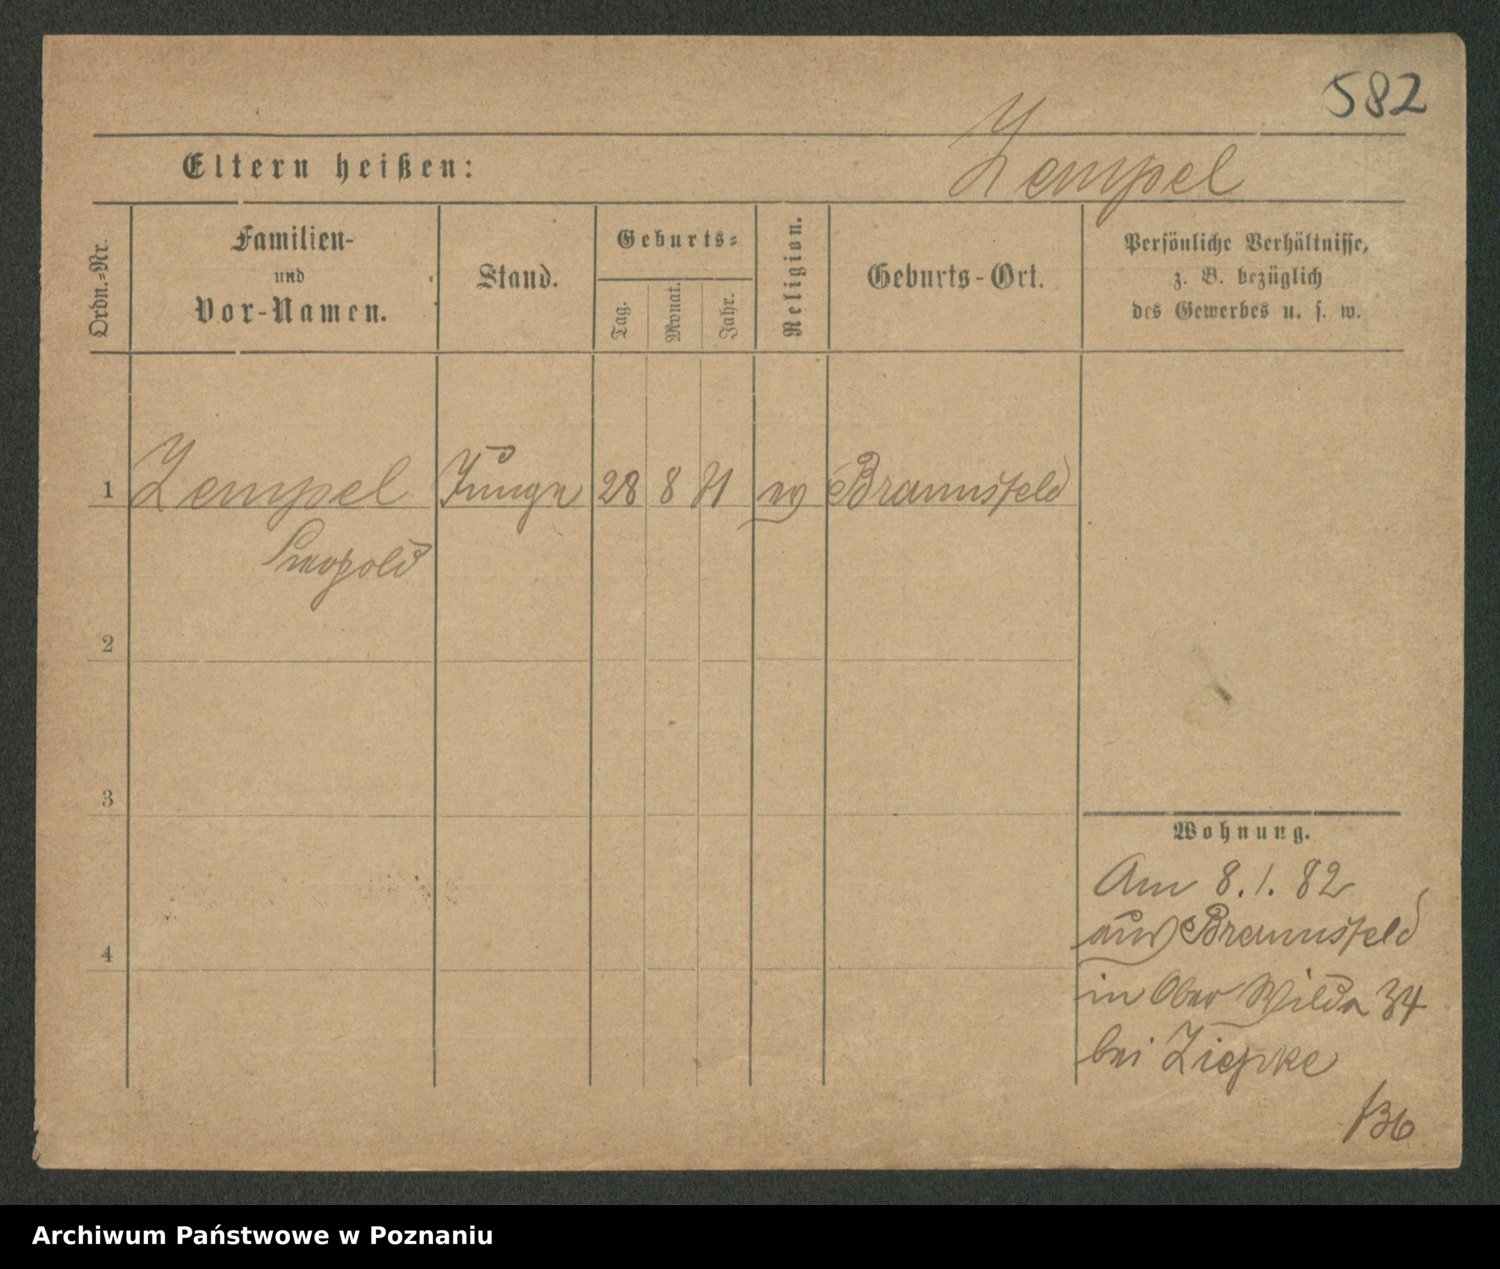 582
Eltern heißen:
Zempel
Ordn.-Nr.
Familien-
und
Vor-Namen.
Stand.
Geburts-
Tag.
Monat.
Jahr.
Religion.
Geburts-Ort.
Persönliche Verhältnisse,
z. B. bezüglich
des Gewerbes u. s. w.
1 Zempel Junge 28 8 81 ev Braunsfeld
Leopold
2
3
4
Wohnung.
Am 8. 1. 82
aus Braunsfeld
in Ober Wilda 34
bei Ziepke
Archiwum Państwowe w Poznaniu